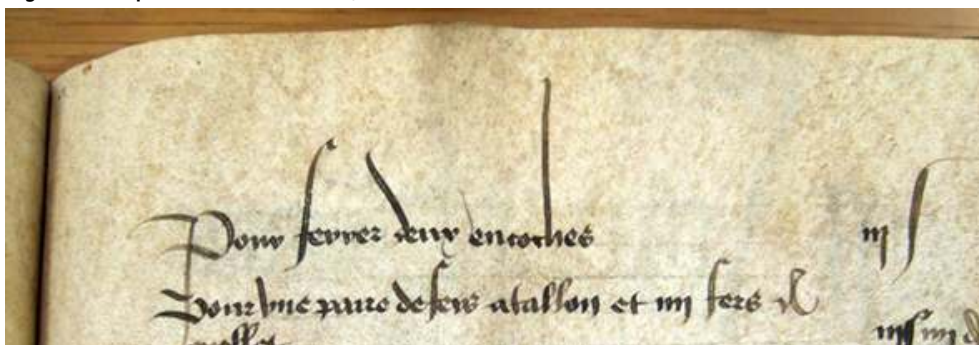 Pour ferrer deux encoches iij s
Pour une paire de fers atallon et iiij fers
iij s iiij d